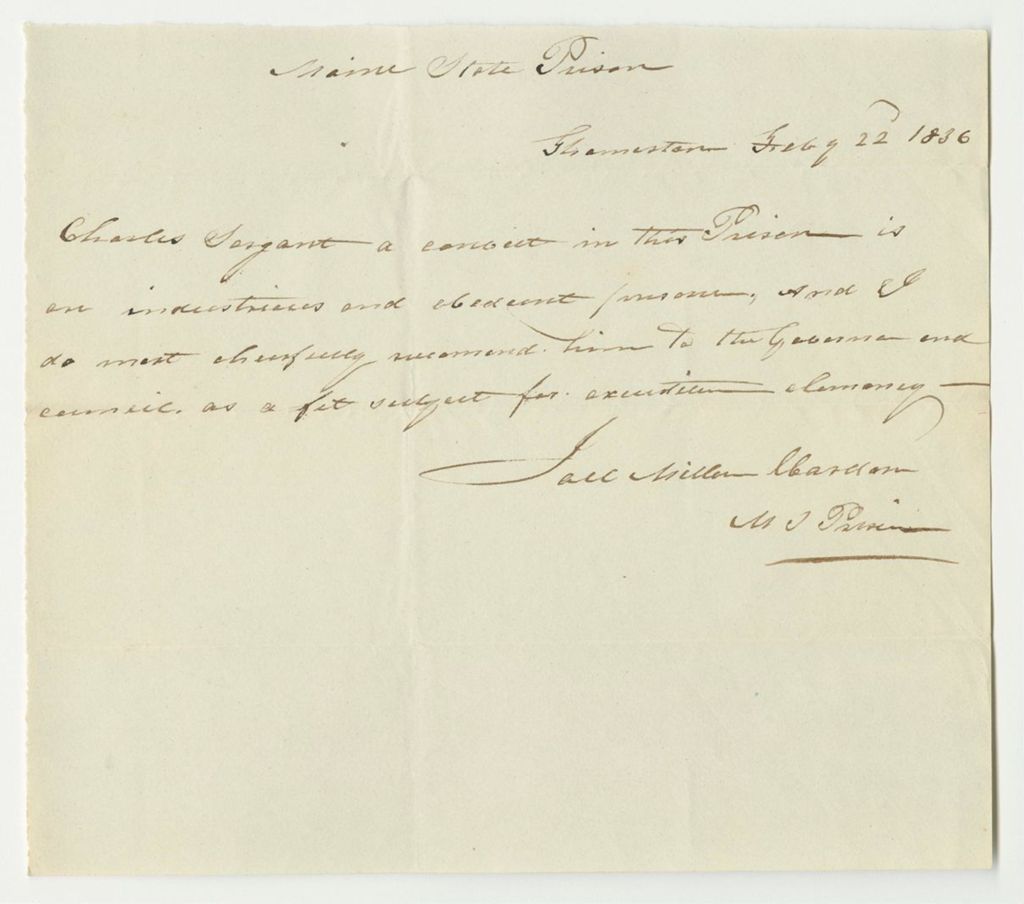 Maine State Prison
Thomaston Feby 22 1836
Charles Sargant a convict in this Prison is
an industrious and obedient prisoner, And I
do most cheerfully recomend him to the Governor and
council. as a fit subject for executive clemancy —
Joel Miller Warden
M S Prison